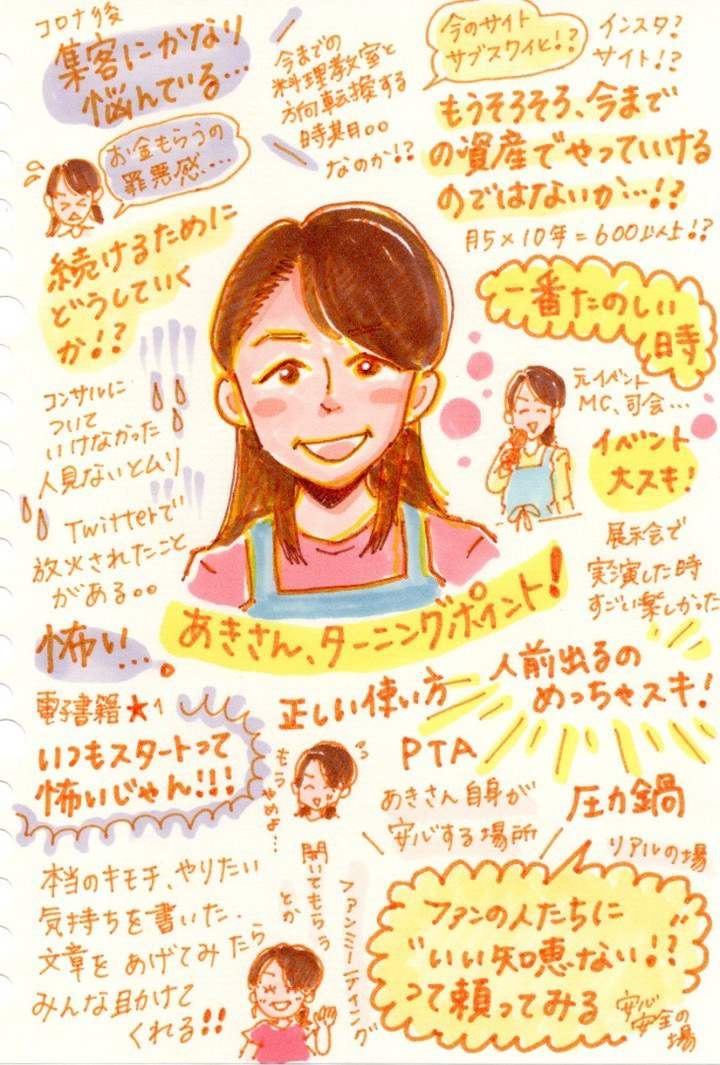 コロナ後
集客にかなり
悩んでいる…
お金もらうの
罪悪感…
続けるために
どうしていく
か!?
今までの
料理教室と
方向転換する
時期。。
なのか!?
今のサイト
サブスクイヒ!?
インスタ?
サイト!?
もうそろそろ、今まで
の資産でやっていける
のではないか…!?
月5×10年=600以上!?
一番たのしい
時
元イベント
MC、司会…
イベント
大スキ!
展示会で
実演した時
すごい楽しかった
コンサルに
ついて
いけなかった
人見ないとムリ
Twitterで
放火されたこと
がある。。
怖い…
あきさん、ターニングポイント!
人前出るの
めっちゃスキ!
電子書籍★1
いつもスタートって
怖いじゃん!!!
正しい使い方
PTA
圧力鍋
もうやめよ…
あきさん自身が
安心する場所
リアルの場
本当のキモチ、やりたい
気持ちを書いた.
文章をあげてみたら
みんな助けて
くれる!!
開いてもらう
とか
ファンミーティング
ファンの人たちに
"いい知恵ない!?
って頼ってみる
安心
安全の
場